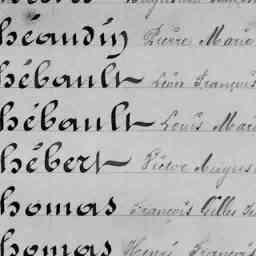 héaudin Pierre Marie
hébault Léon François
hébault Louis Mari
hébert Victor Augus
homas François Gilles
homas Henri François